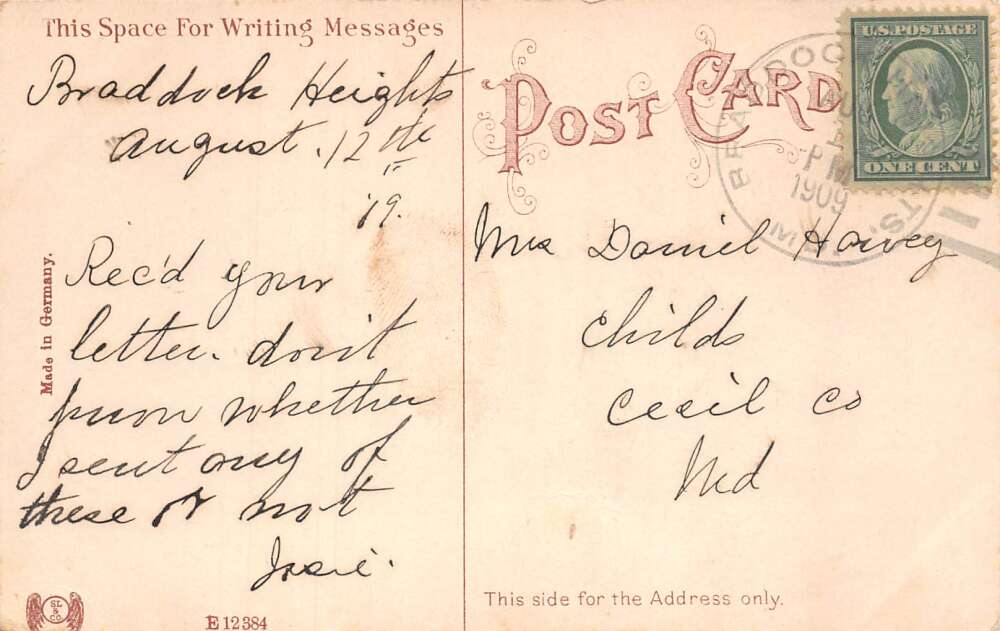 This Space For Writing Messages
Braddock Heights
August. 12th
19.
Rec'd your
letter. don't
know whether
I sent any of
these or not
Josie.
Made in Germany.
SL & CO
E 12384
POST CARD
BRADDOC TS, MD.
AU
PM
1909
U.S. POSTAGE
ONE CENT
Mrs Daniel Harvey
Childs
Cecil Co
Md
This side for the Address only.